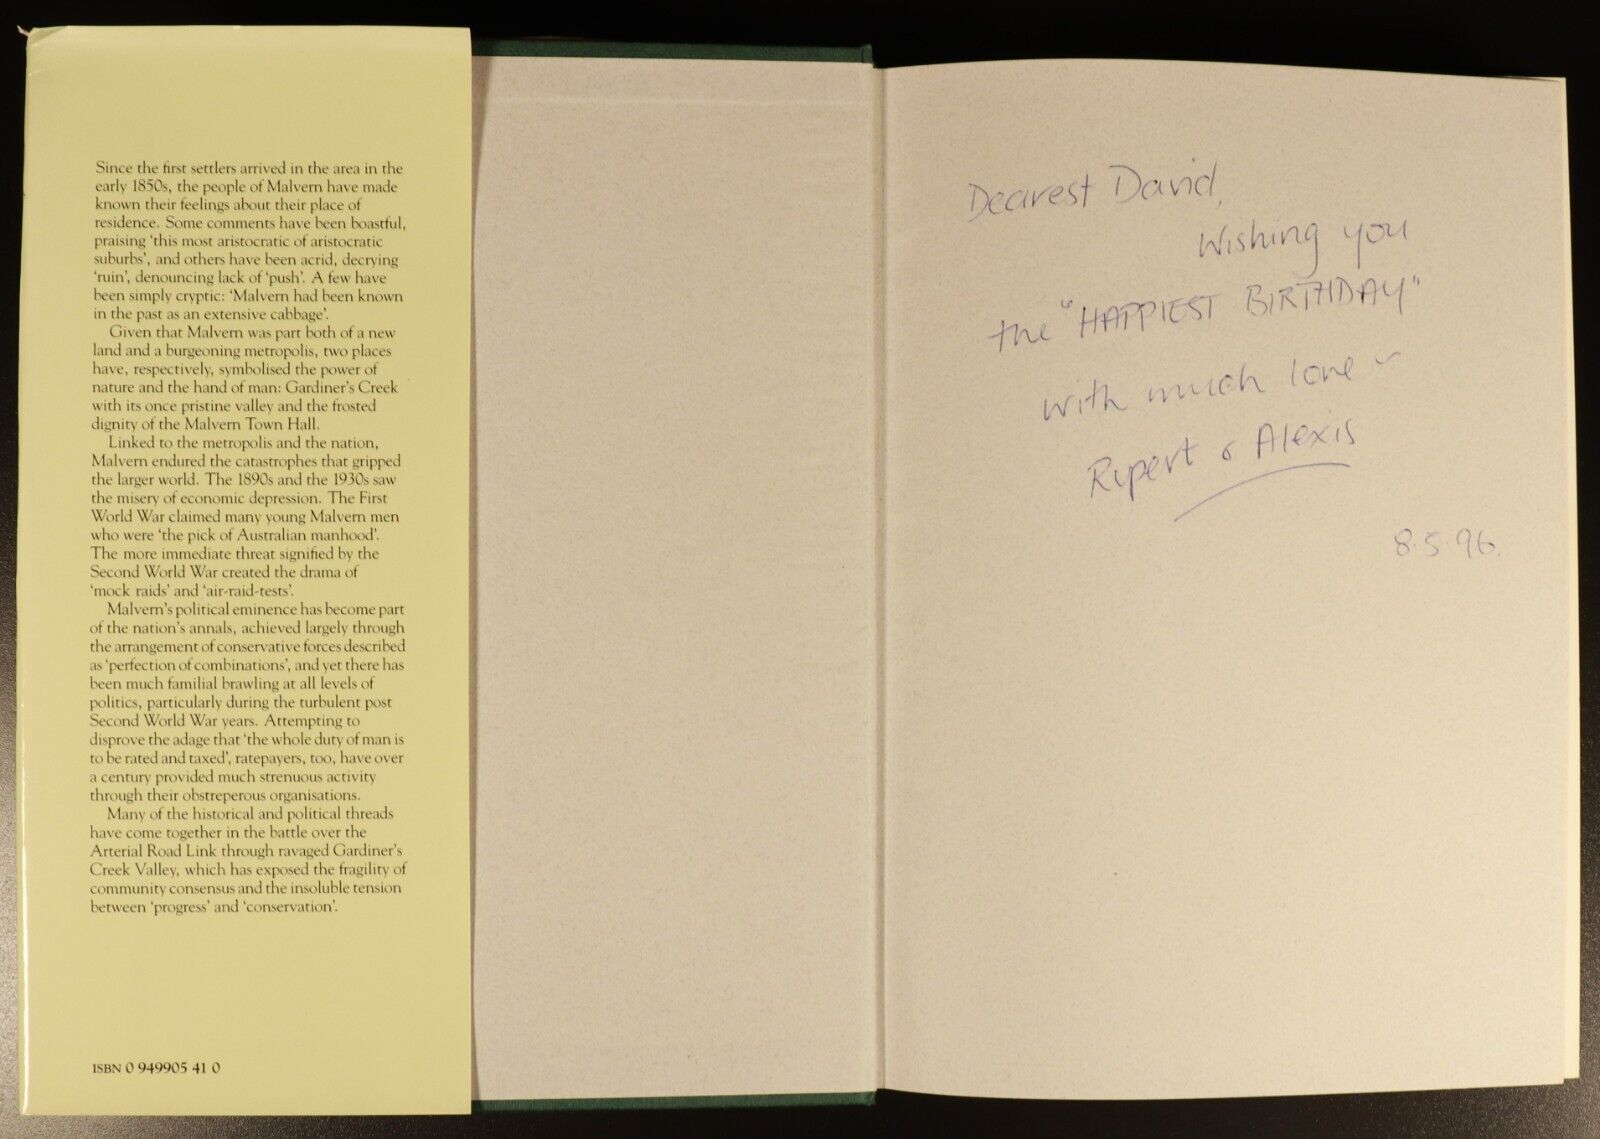 Since the first settlers arrived in the area in the
early 1850s, the people of Malvern have made
known their feelings about their place of
residence. Some comments have been boastful,
praising ‘this most aristocratic of aristocratic
suburbs’, and others have been acrid, decrying
‘ruin’, denouncing lack of ‘push’. A few have
been simply cryptic: ‘Malvern had been known
in the past as an extensive cabbage’.
Given that Malvern was part both of a new
land and a burgeoning metropolis, two places
have, respectively, symbolised the power of
nature and the hand of man: Gardiner’s Creek
with its once pristine valley and the frosted
dignity of the Malvern Town Hall.
Linked to the metropolis and the nation,
Malvern endured the catastrophes that gripped
the larger world. The 1890s and the 1930s saw
the misery of economic depression. The First
World War claimed many young Malvern men
who were ‘the pick of Australian manhood’.
The more immediate threat signified by the
Second World War created the drama of
‘mock raids’ and ‘air-raid-tests’.
Malvern’s political eminence has become part
of the nation’s annals, achieved largely through
the arrangement of conservative forces described
as ‘perfection of combinations’, and yet there has
been much familial brawling at all levels of
politics, particularly during the turbulent post
Second World War years. Attempting to
disprove the adage that ‘the whole duty of man is
to be rated and taxed’, ratepayers, too, have over
a century provided much strenuous activity
through their obstreperous organisations.
Many of the historical and political threads
have come together in the battle over the
Arterial Road Link through ravaged Gardiner’s
Creek Valley, which has exposed the fragility of
community consensus and the insoluble tension
between ‘progress’ and ‘conservation’.
ISBN 0 949905 41 0
Dearest David,
Wishing you
the "HAPPIEST BIRTHDAY"
with much love ~
Rupert & Alexis
8.5.96.